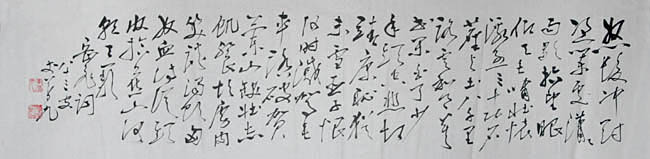 怒发冲冠
凭栏处潇潇
雨歇抬望眼
仰天长啸壮怀
激烈三十功名
尘与土八千里
路云和月莫
等闲白了少
年头空悲切
靖康耻犹
未雪臣子恨
何时灭驾长
车踏破贺
兰山缺壮志
饥餐胡虏肉
笑谈渴饮匈
奴血待从头
收拾旧山河
朝天阙
岳飞词